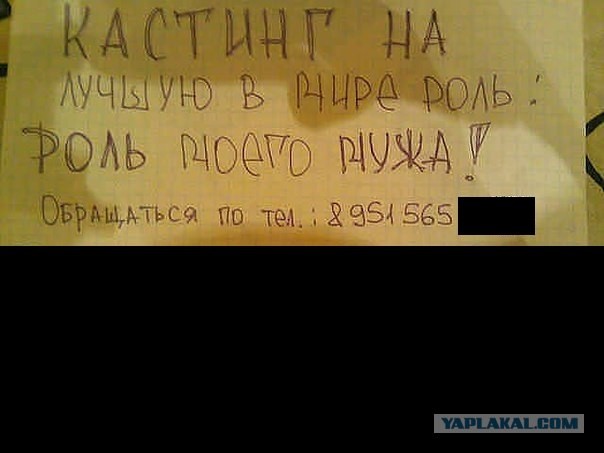 КАСТИНГ НА
ЛУЧШУЮ В МИРЕ РОЛЬ:
РОЛЬ МОЕГО МУЖА!
ОБРАЩАТЬСЯ ПО ТЕЛ.: 8 951 565
YAPLAKAL.COM